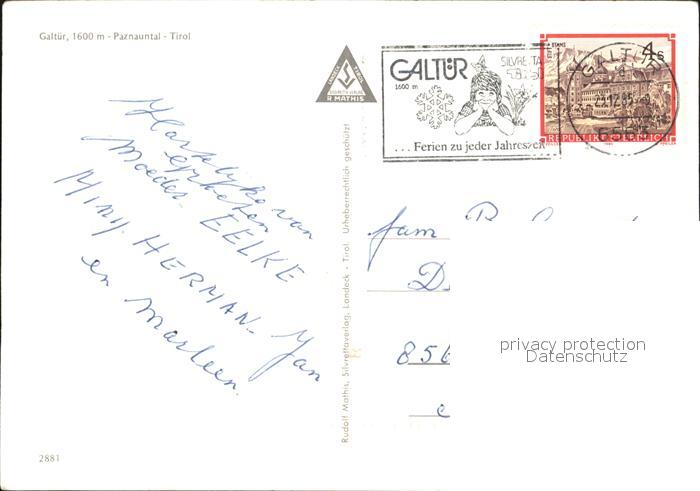 Galtür, 1600 m - Paznauntal - Tirol
R MATHIS
GALTÜR
1600 m
... Ferien zu jeder Jahreszeit
STAMS
4 S
REPUBLIK ÖSTERREICH
Hartelijke
groeten van
Moeder. EELKE
MINY HERMAN. Jan
en Marleen.
Rudolf Mathis, Silvrettaverlag, Landeck - Tirol. Urheberrechtlich geschützt!
fam
D.
856
privacy protection
Datenschutz
2881